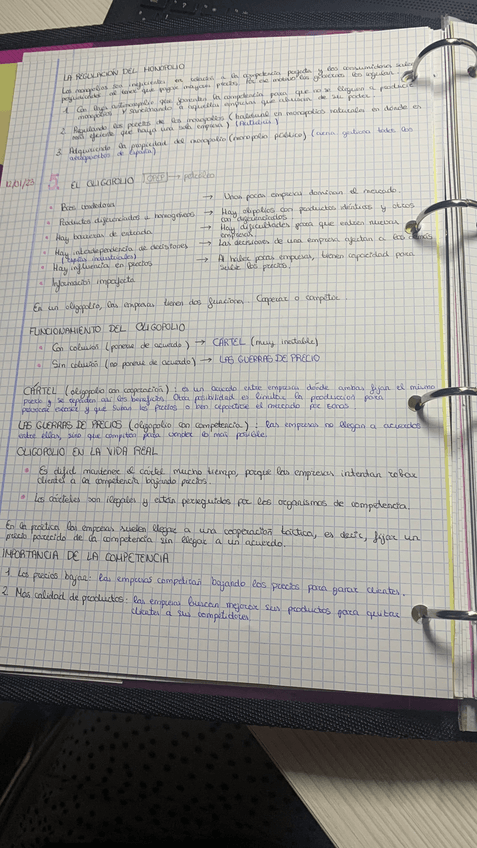 LA REGULACIÓN DEL MONOPOLIO
Los monopolios son en relación a la competencia perfecta y los consumidores salen
perjudicados al tener que pagar mayores precios. Por ese motivo los gobiernos los regulan
1. Con leyes antimonopolio que la competencia para que no se lleguen a producir
monopolios y sancionando a aquellas empresas que abusaran de su poder.
2. Regulando los precios de los monopolios ( en monopolios naturales en donde es
más eficiente que haya una sola empresa)
3. Adquiriendo la propiedad del monopolio (monopolio público) ( gestiona todos los
aeropuertos de España)
12/01/23 5. EL OLIGOPOLIO → petróleo
• Pocos vendedores → Unas pocas empresas dominan el mercado.
• Productos diferenciados u homogéneos → Hay oligopolios con productos idénticos y otros
con diferenciados
• Hay barreras de entrada → Hay dificultades para que entren nuevas
empresas
• Hay interdependencia de decisiones → Las decisiones de una empresa afectan a las demás
• Hay influencia en precios → Al haber pocas empresas, tienen capacidad para
subir los precios.
• Información imperfecta
En un oligopolio, las empresas tienen dos funciones. Cooperar o competir
FUNCIONAMIENTO DEL OLIGOPOLIO
• Con colusión (ponerse de acuerdo) → CÁRTEL (muy inestable)
• Sin colusión (no ponerse de acuerdo) → LAS GUERRAS DE PRECIO
CÁRTEL (oligopolio con cooperación): es un acuerdo entre empresas donde ambas fijan el mismo
precio y se reparten así los beneficios. Otra posibilidad es limitar la producción para
provocar escasez y que suban los precios o bien repartirse el mercado por zonas
LAS GUERRAS DE PRECIOS (oligopolio con competencia): Las empresas no llegan a acuerdos
entre ellas, sino que compiten para vender lo más posible.
OLIGOPOLIO EN LA VIDA REAL
• Es difícil mantener el cártel mucho tiempo, porque las empresas intentan robar
clientes a la competencia bajando precios.
• Los cárteles son ilegales y están perseguidos por los organismos de competencia.
En la práctica las empresas suelen llegar a una cooperación táctica, es decir, fijar un
precio parecido de la competencia sin llegar a un acuerdo.
IMPORTANCIA DE LA COMPETENCIA
1. Los precios bajan: las empresas compiten bajando los precios para ganar clientes.
2. Más calidad de productos: las empresas buscan mejorar sus productos para quitar
clientes a sus competidores